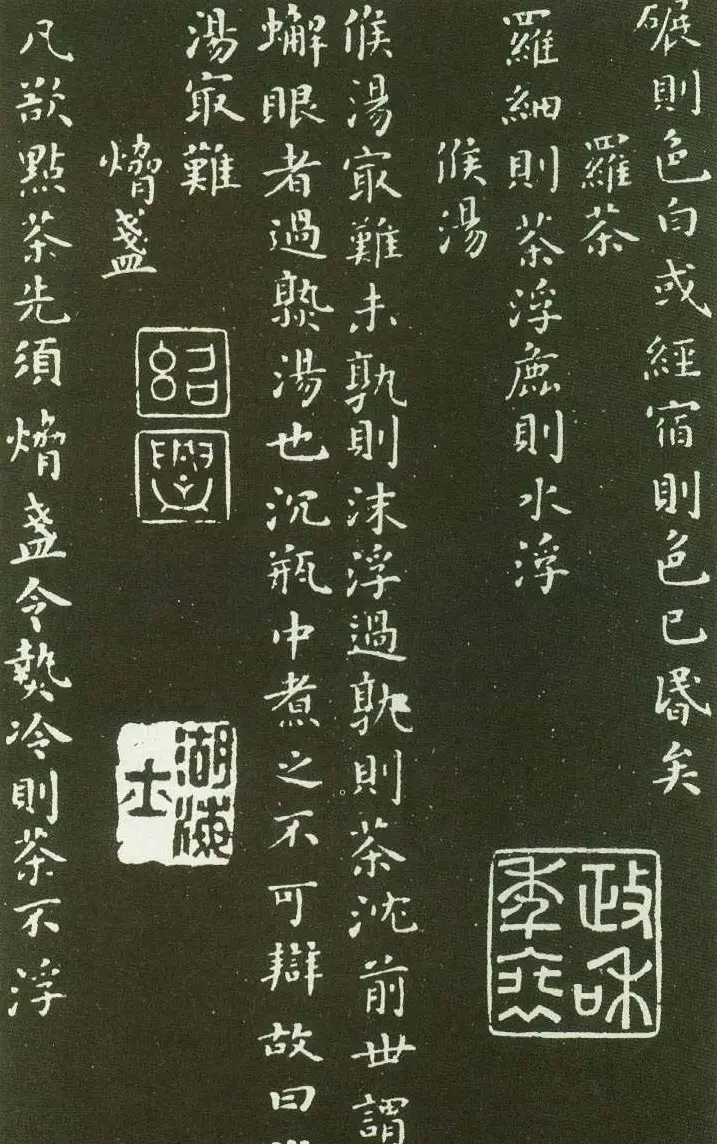 碾則色白或經宿則色已昬矣
羅茶
羅細則茶浮麁則水浮
候湯
候湯㝡難未孰則沫浮過孰則茶沈前世謂
蠏眼者過熟湯也沉瓶中煮之不可辯故曰
湯㝡難
熁盞
凡欲點茶先須熁盞令熱冷則茶不浮
政和
紹
興
湖海
士